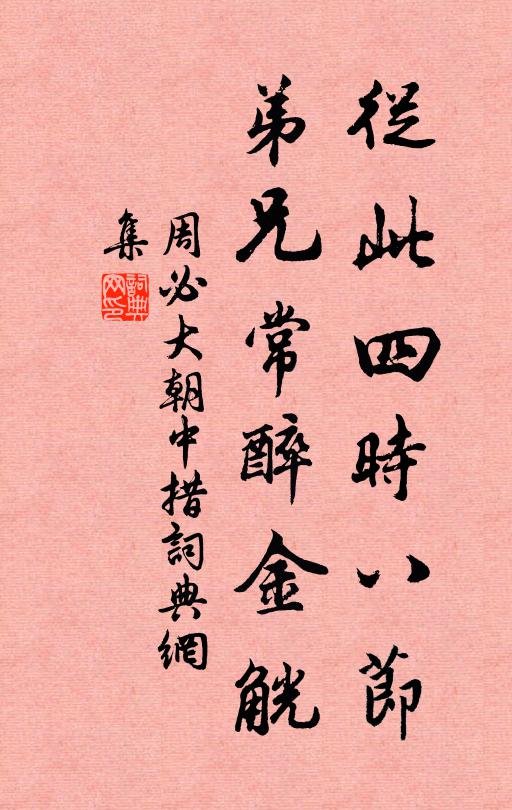 從此四時八節
弟兄常醉金觥
周必大朝中措詞典網
集
詞典
网印